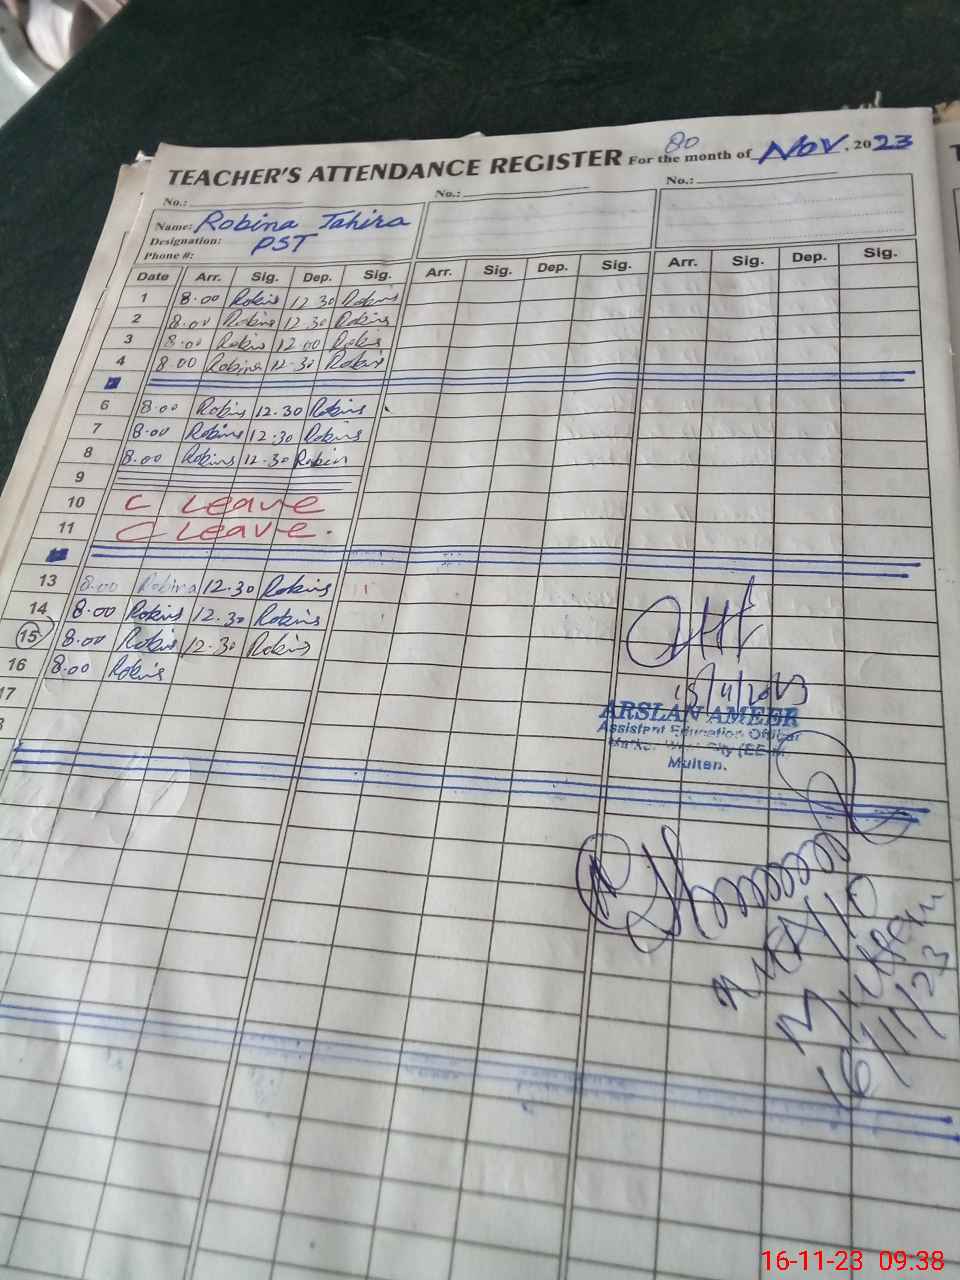 80
TEACHER'S ATTENDANCE REGISTER For the month of Nov, 2023
No.: No.: No.:
Name: Robina Tahira
Designation: PST
Phone #:
Date Arr. Sig. Dep. Sig. Arr. Sig. Dep. Sig. Arr. Sig. Dep. Sig.
1 8.00 Robins 12.30 Robins
2 8.00 Robins 12.30 Robins
3 8.00 Robins 12.00 Robins
4 8.00 Robina 12.30 Robins
6 8.00 Robins 12.30 Robins
7 8.00 Robins 12.30 Robins
8 8.00 Robins 12.30 Robin
9
10 C Leave
11 C Leave.
13 8.00 Robina 12.30 Robins
14 8.00 Robins 12.30 Robins
15 8.00 Robins 12.30 Robins
16 8.00 Robins
17
15/11/2023
ARSLAN AMEER
Assistant Education Officer
Markaz West City (EE-M)
Multan.
16/11/23
16-11-23 09.38